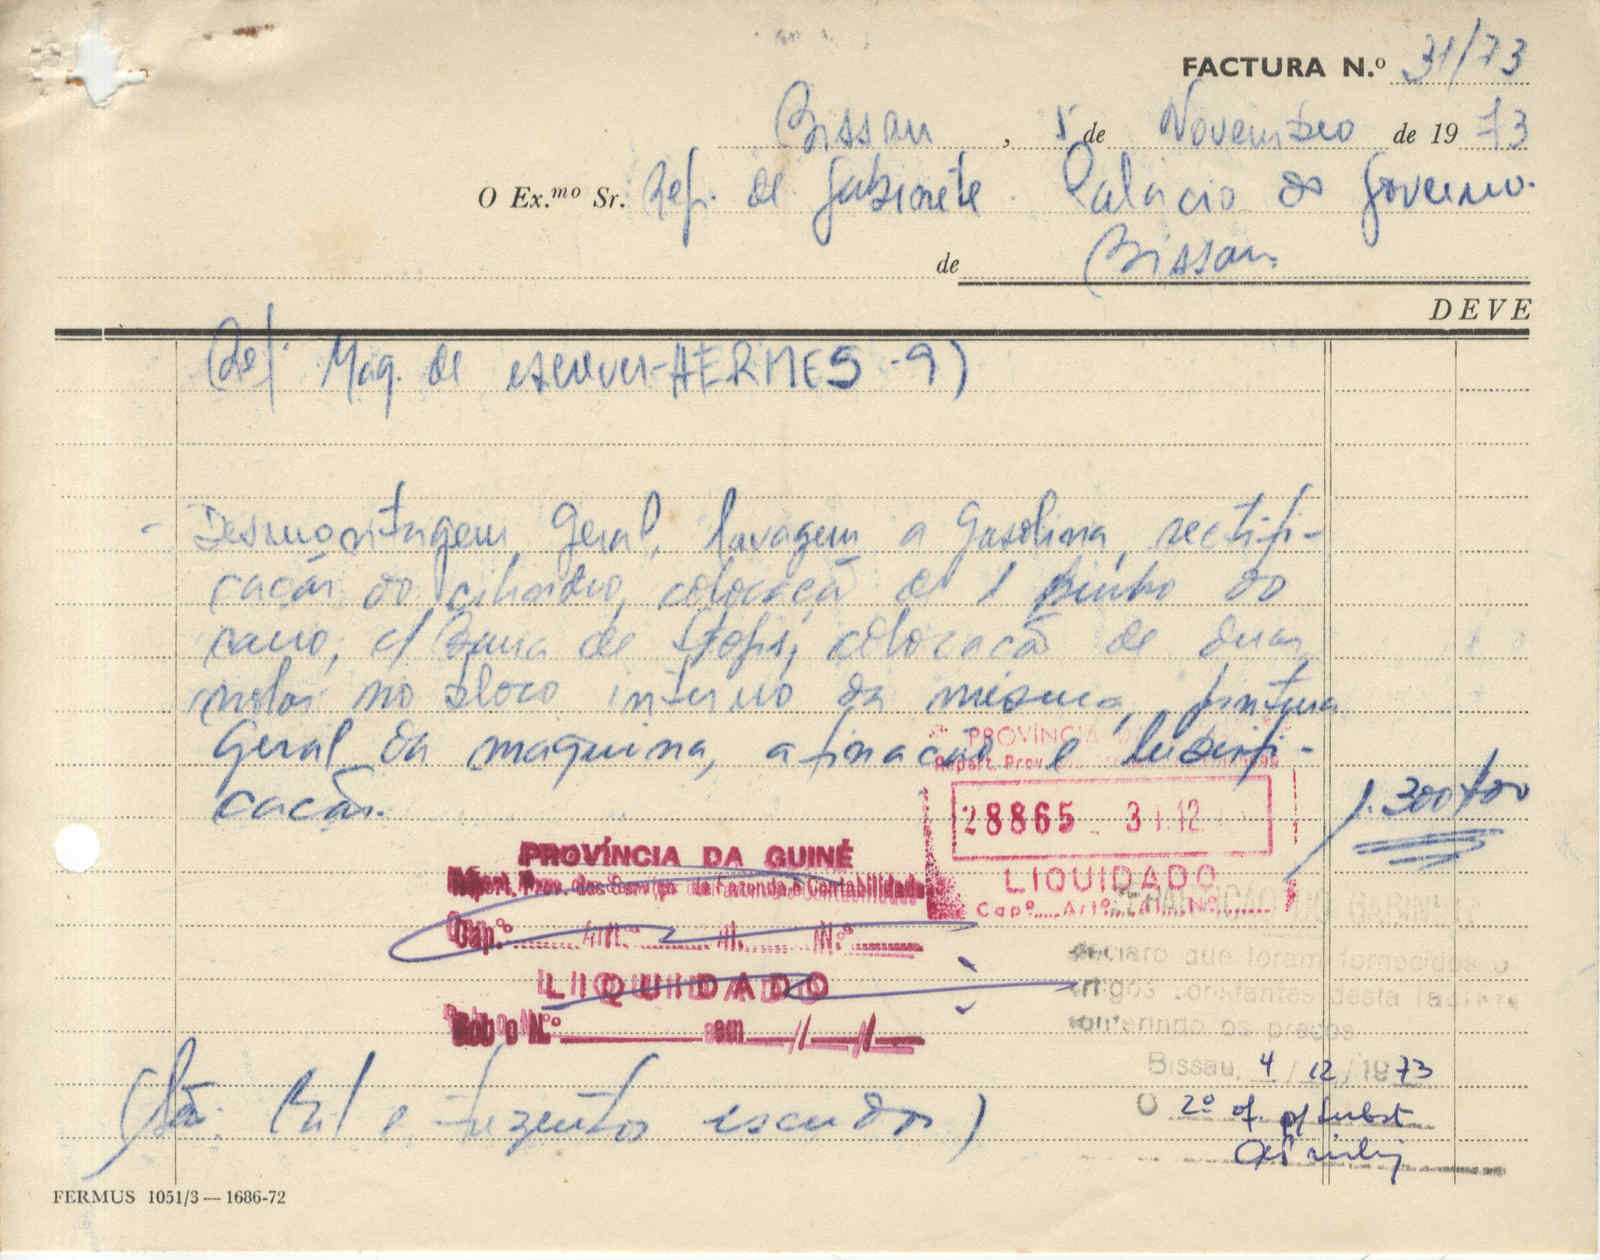 FACTURA N.º 31/73
Bissau, 5 de Novembro de 1973
O Ex.mo Sr. Rep. de Gabinete. Palácio do Governo.
de Bissau.
DEVE
(Ref. Maq. de escrever-HERMES-9)
- Desmontagem Geral, lavagem a Gasolina, rectifi-
cacão do cilindro, colocacão de 1 pinhão do
carro, c/ Barra de Stops, colocacão de duas
molas no bloco interno da mesma, pintura
Geral da maquina, afinacão e lubrifi-
cacão. 1.300$00
PROVÍNCIA
Repart. Prov.
28865 31.12
LIQUIDADO
Capº..... Artº..... Nº.....
PROVÍNCIA DA GUINÉ
Repart. Prov. dos Serviços de Fazenda e Contabilidade
Cap.º ........ Art.º ........ N.º ........
LIQUIDADO
N.º em / /
REPARTIÇÃO DO GABINETE
Declaro que foram fornecidos o
artigos constantes desta factura
conferindo os preços
Bissau, 4 / 12 / 1973
O 2º of. p/ subst
(São: Mil e trezentos escudos)
FERMUS 1051/3 — 1686-72